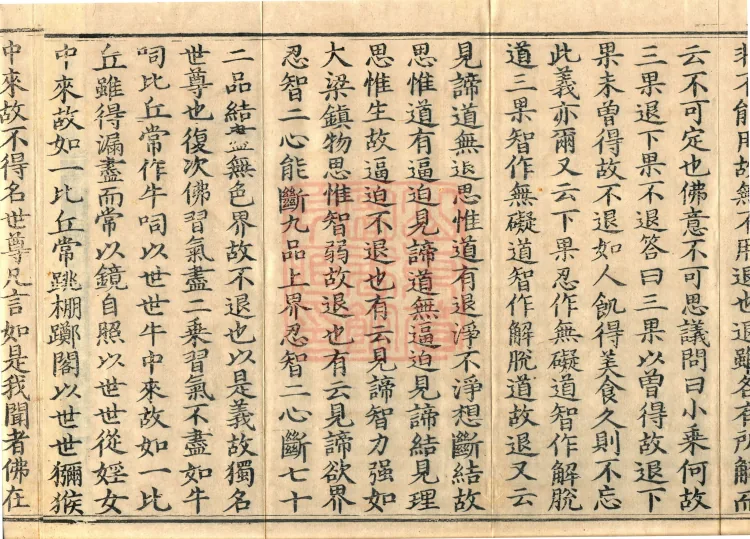 非不能用故無不用退也退雖名有所解而
云不可定也佛意不可思議問曰小乘何故
三果退下果不退答曰三果以曾得故退下
果未曾得故不退如人飢得美食久則不忘
此義亦爾又云下果忍作無礙道智作解脫
道三果智作無礙道智作解脫道故退又云
見諦道無退思惟道有退淨不淨想斷結故
思惟道有逼迫見諦道無逼迫見諦結見理
思惟生故逼迫不退也有云見諦智力强如
大梁鎮物思惟智弱故退也有云見諦欲界
忍智二心能斷九品上界忍智二心斷七十
二品結盡無色界故不退也以是義故獨名
世尊也復次佛習氣盡二乘習氣不盡如牛
呞比丘常作牛呞以世世牛中來故如一比
丘雖得漏盡而常以鏡自照以世世從婬女
中來故如一比丘常跳棚躑閣以世世獼猴
中來故不得名世尊凡言如是我聞者佛在